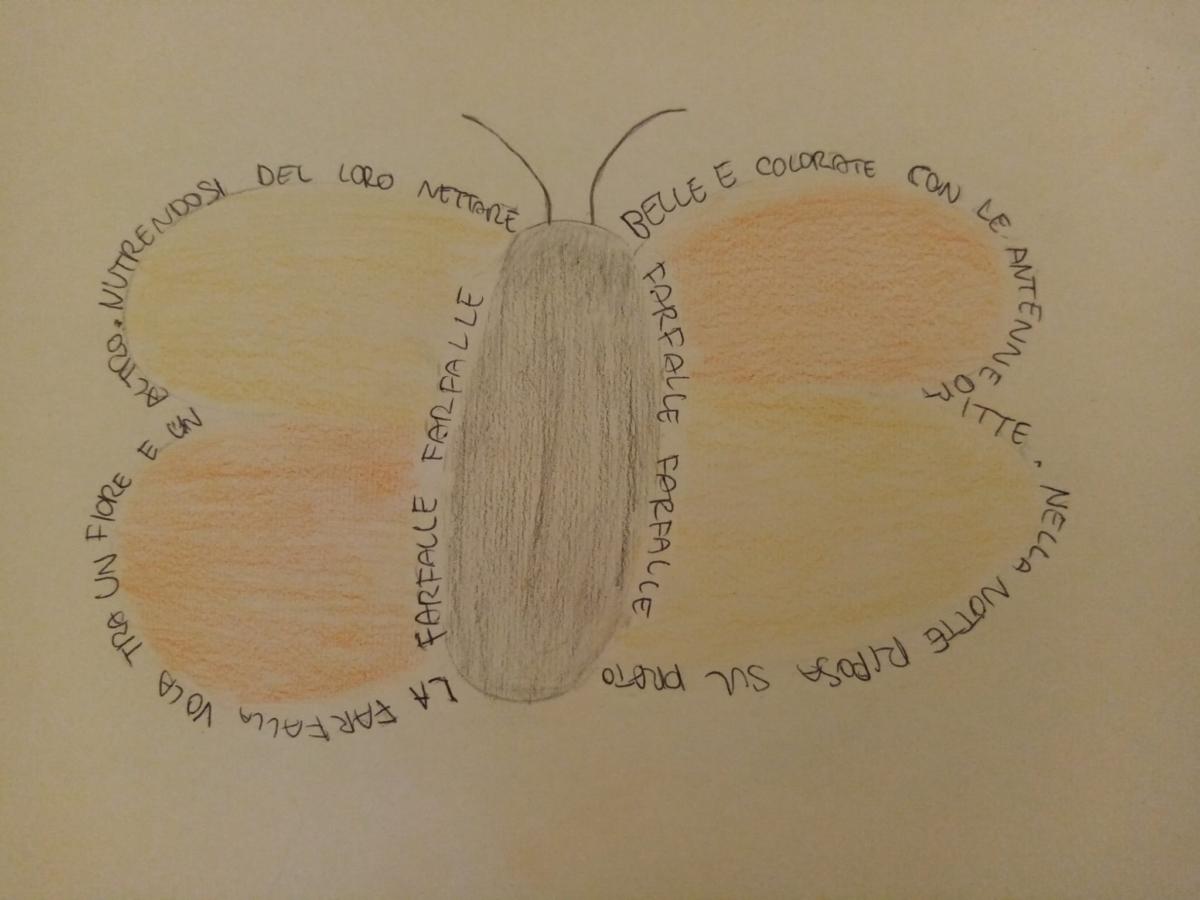 LA FARFALLA VOLA TRA UN FIORE E UN ALTRO. NUTRENDOSI DEL LORO NETTARE
BELLE E COLORATE CON LE ANTENNE DRITTE. NELLA NOTTE RIPOSA SUL PRATO
FARFALLE FARFALLE
FARFALLE FARFALLE